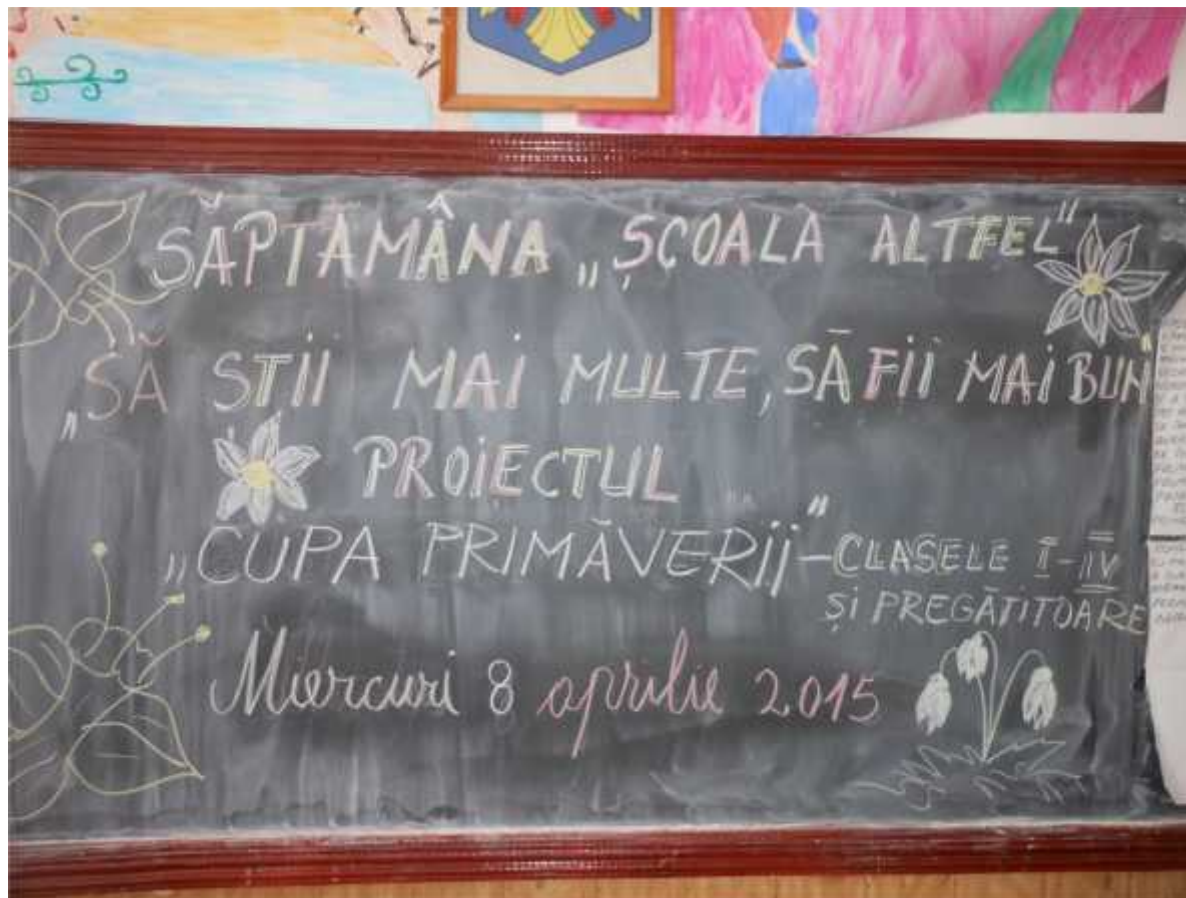 SĂPTĂMÂNA „ŞCOALA ALTFEL"
„SĂ ŞTII MAI MULTE, SĂ FII MAI BUN"
PROIECTUL
„CUPA PRIMĂVERII" - CLASELE I-IV
ŞI PREGĂTITOARE
Miercuri 8 aprilie 2015